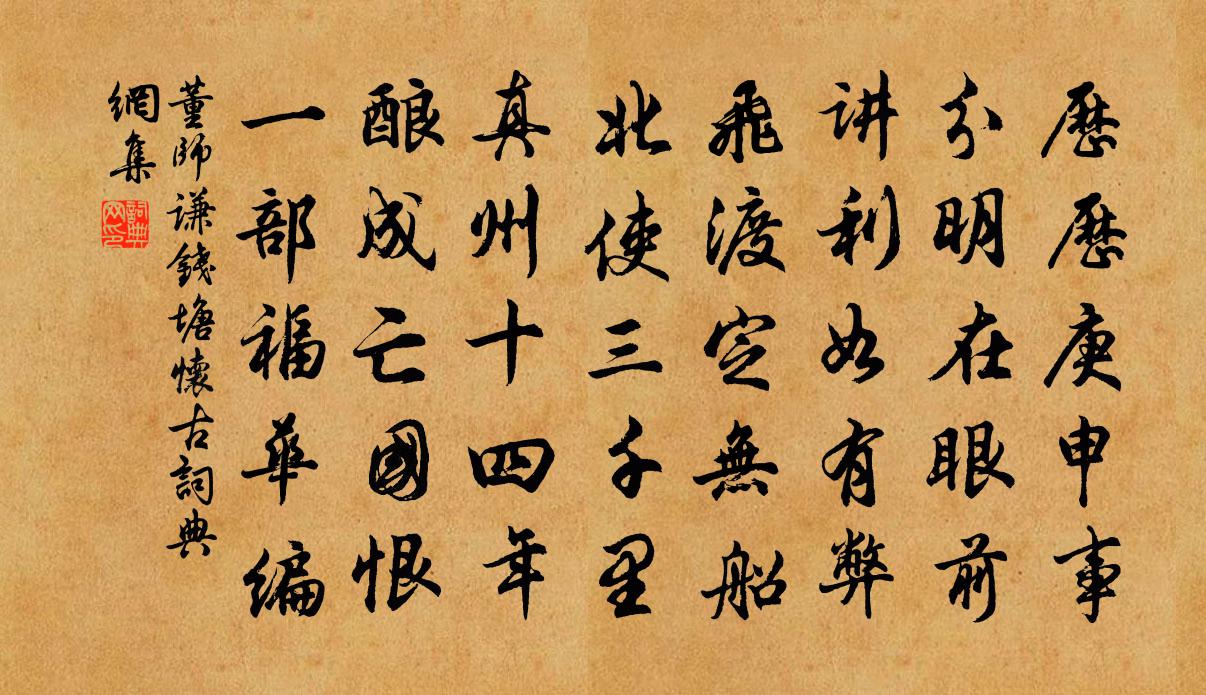 歷歷庚申事
分明在眼前
讲利如有弊
飛渡定無船
北使三千里
真州十四年
酿成亡國恨
一部福華编
董師谦錢塘懷古詞典
網集
詞典
网印